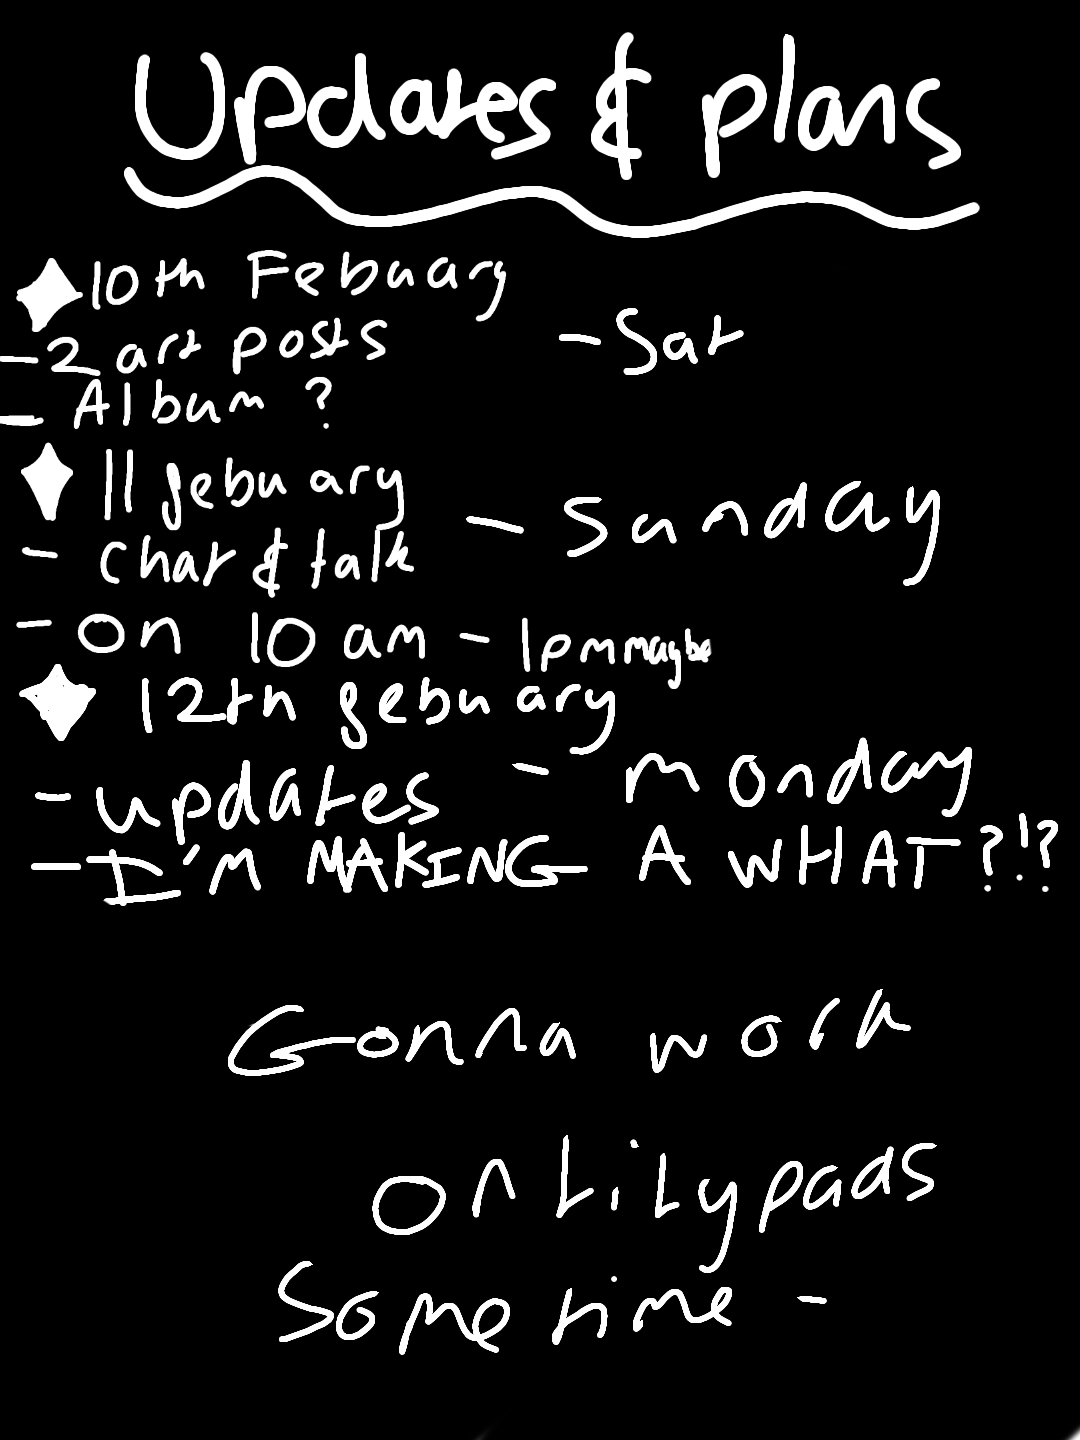 Updates & plans
10th Febuary
- Sat
- 2 art posts
- Album ?
11 febuary
- Sunday
- chat & talk
- on 10 am - 1pm maybe
12th febuary
- updates - monday
- I'M MAKING A WHAT?!?
Gonna work
on Lilypads
Sometime -